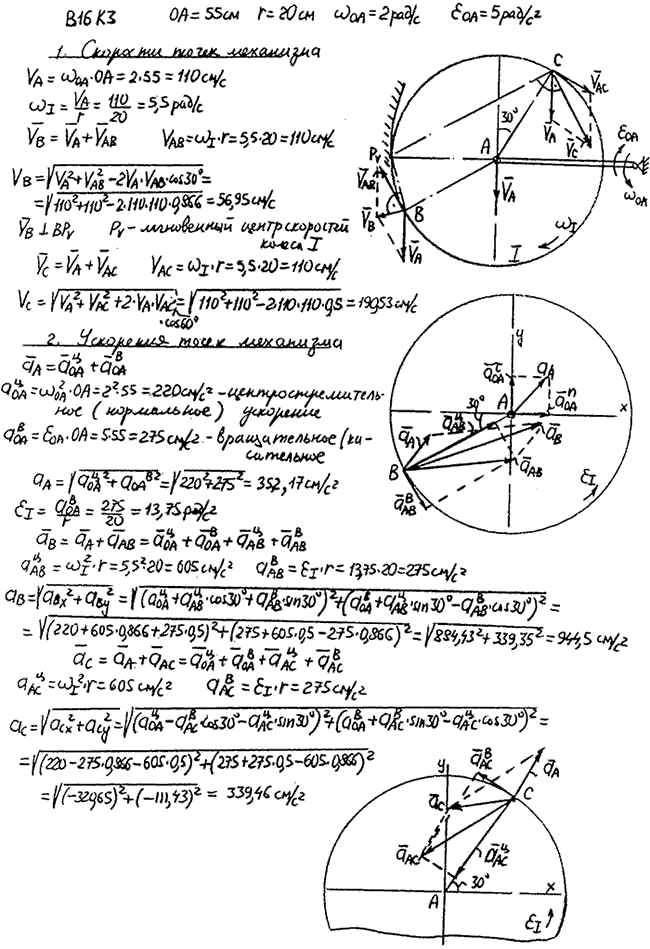 В16 К3 OA = 55см r = 20см ω_OA = 2рад/с ε_OA = 5рад/с²
1. Скорости точек механизма
V_A = ω_OA·OA = 2·55 = 110 см/с
ω_I = V_A/r = 110/20 = 5,5 рад/с
V̄_B = V̄_A + V̄_AB V_AB = ω_I·r = 5,5·20 = 110 см/с
V_B = √(V_A² + V_AB² − 2V_A·V_AB·cos30°) =
= √(110² + 110² − 2·110·110·0,866) = 56,95 см/с
V̄_B ⊥ BP_V P_V – мгновенный центр скоростей
колеса I
V̄_C = V̄_A + V̄_AC V_AC = ω_I·r = 5,5·20 = 110 см/с
V_C = √(V_A² + V_AC² + 2·V_A·V_AC·cos60°) = √(110² + 110² − 2·110·110·0,5) = 190,53 см/с
C
V̄_AC
30°
A
V̄_A
V̄_C
ε_OA
ω_OA
P_V
V̄_AB
V̄_B
B
V̄_A
V̄_A
I
ω_I
2. Ускорения точек механизма
ā_A = ā_OA^ц + ā_OA^в
a_OA^ц = ω_OA²·OA = 2²·55 = 220 см/с² – центростремитель-
ное (нормальное) ускорение
a_OA^в = ε_OA·OA = 5·55 = 275 см/с². – вращательное (ка-
сательное
a_A = √(a_OA^ц² + a_OA^в²) = √(220² + 275²) = 352,17 см/с²
ε_I = a_OA^в/r = 275/20 = 13,75 рад/с²
ā_B = ā_A + ā_AB = ā_OA^ц + ā_OA^в + ā_AB^ц + ā_AB^в
a_AB^ц = ω_I²·r = 5,5²·20 = 605 см/с² a_AB^в = ε_I·r = 13,75·20 = 275 см/с²
a_B = √(a_Bx² + a_By²) = √((a_OA^ц + a_AB^ц·cos30° + a_AB^в·sin30°)² + (a_OA^в + a_AB^ц·sin30° − a_AB^в·cos30°)²) =
= √((220 + 605·0,866 + 275·0,5)² + (275 + 605·0,5 − 275·0,866)²) = √(884,43² + 339,35²) = 944,5 см/с²
y
ā_OA^τ
a_A
30°
A
ā_OA^n
x
ā_A
ā_AB^ц
ā_B
B
ā_AB
ā_AB^в
ε_I
ā_C = ā_A + ā_AC = ā_OA^ц + ā_OA^в + ā_AC^ц + ā_AC^в
a_AC^ц = ω_I²·r = 605 см/с² a_AC^в = ε_I·r = 275 см/с²
a_C = √(a_Cx² + a_Cy²) = √((a_OA^ц − a_AC^в·cos30° − a_AC^ц·sin30°)² + (a_OA^в + a_AC^в·sin30° − a_AC^ц·cos30°)²) =
= √((220 − 275·0,866 − 605·0,5)² + (275 + 275·0,5 − 605·0,866)²
= √((−320,65)² + (−111,43)²) = 339,46 см/с²
y
ā_AC^в
ā_A
ā_C
C
ā_AC
ā_AC^ц
A
30°
x
ε_I